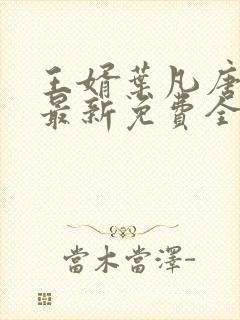 王婿葉凡唐
最新免費全
當木當澤-